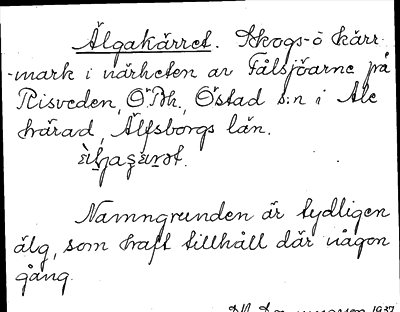 Älgakärret. Skogs- o kärr-
-mark i närheten av Fålsjöarne på
Risveden, Ö.Bh, Östad s:n i Ale
härad, Älfsborgs län.
Namngrunden är tydligen
älg, som haft tillhåll där någon
gång.
1937